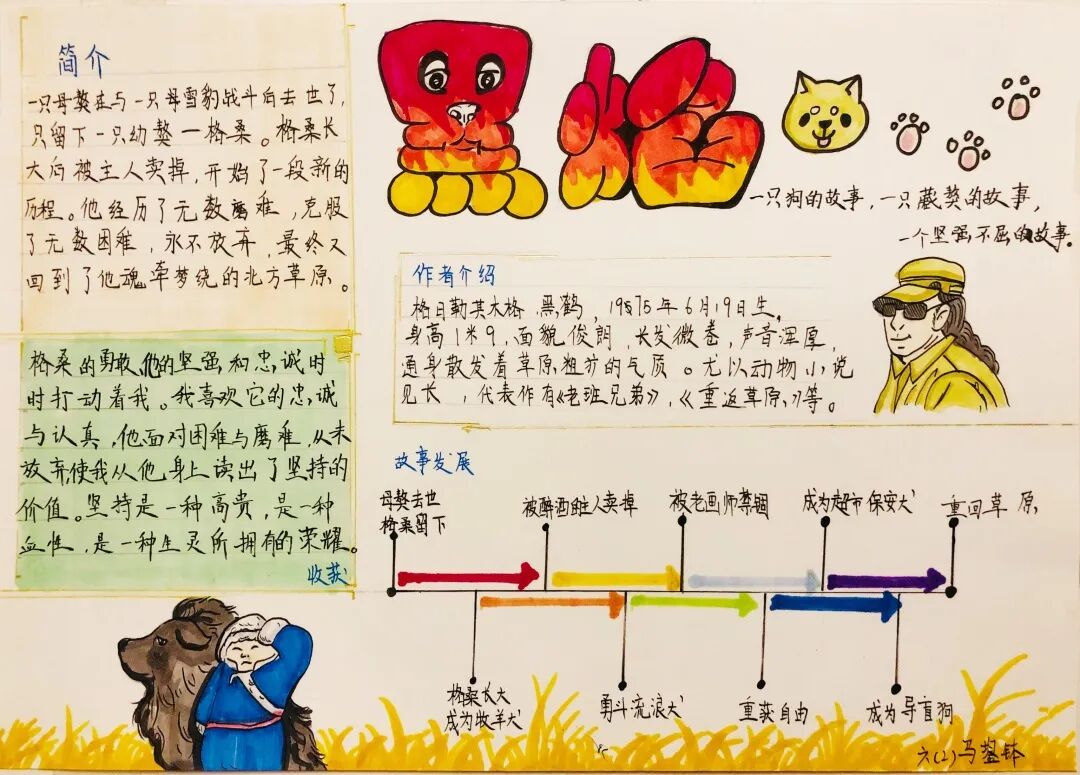 简介
一只母獒在与一只母雪豹战斗后去世了,
只留下一只幼獒一格桑。格桑长
大后被主人卖掉,开始了一段新的
历程。他经历了无数磨难,克服
了无数困难,永不放弃,最终又
回到了他魂牵梦绕的北方草原。
格桑的勇敢,他的坚强和忠诚时
时打动着我。我喜欢它的忠诚
与认真,他面对困难与磨难,从未
放弃,使我从他身上读出了坚持的
价值。坚持是一种高贵,是一种
血性,是一种生灵所拥有的荣耀。
收获
黑焰
一只狗的故事,一只藏獒的故事,
一个坚强不屈的故事。
作者介绍
格日勒其木格·黑鹤,1975年6月19日生。
身高1米9,面貌俊朗,长发微卷,声音浑厚,
通身散发着草原粗犷的气质。尤以动物小说
见长,代表作有《老班兄弟》,《重返草原》等。
故事发展
母獒去世
格桑留下
被醉酒的主人卖掉
被老画师禁锢
成为超市保安犬
重回草原
格桑长大
成为牧羊犬
勇斗流浪犬
重获自由
成为导盲狗
六(2)马